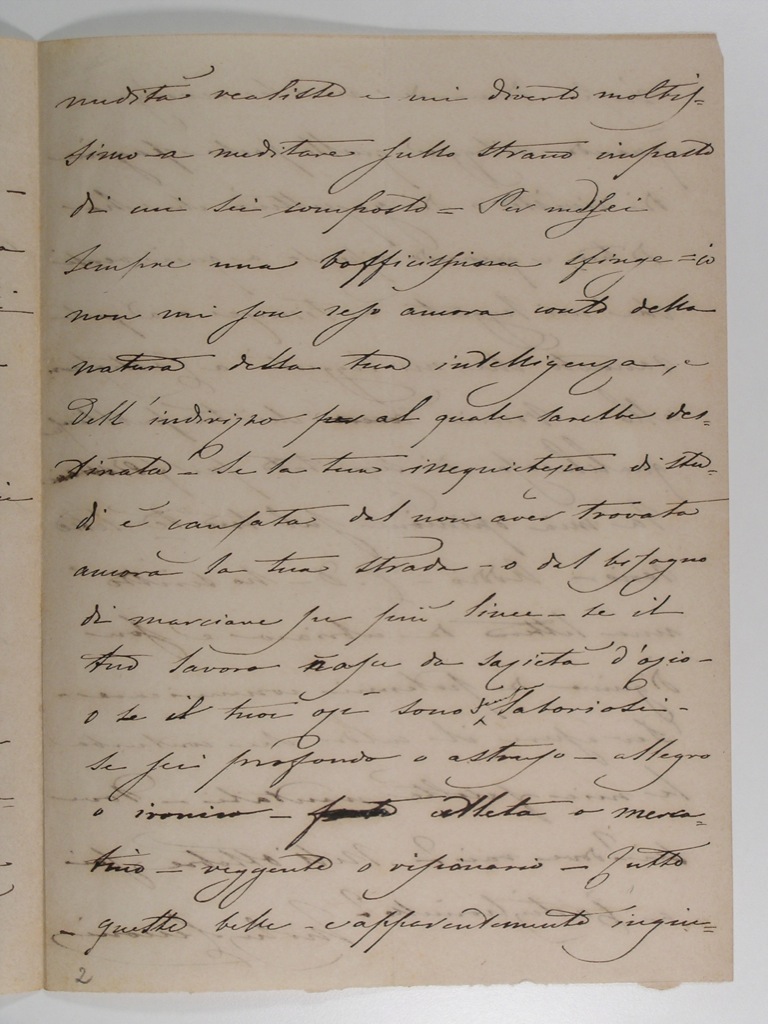 nudità realiste e mi diverto moltis=
simo a meditare sullo strano impasto
di cui sei composto = Per me sei
sempre una sfinge = io
non mi son reso ancora conto della
natura della tua intelligenza, e
dell'indirizzo al quale sarebbe des=
tinata = Se la tua inequietezza di stu=
di è causata dal non aver trovata
ancora la tua strada - o dal bisogno
di marciare su più linee - se il
tuo lavoro nasce da sazietà d'ozio -
o se il tuoi ozi sono laboriosi -
se sei profondo o astruso - allegro
o ironico - atleta o merca=
tino - veggente o visionario - Tutto
questo bebe - e apparentemente ingiu=
2